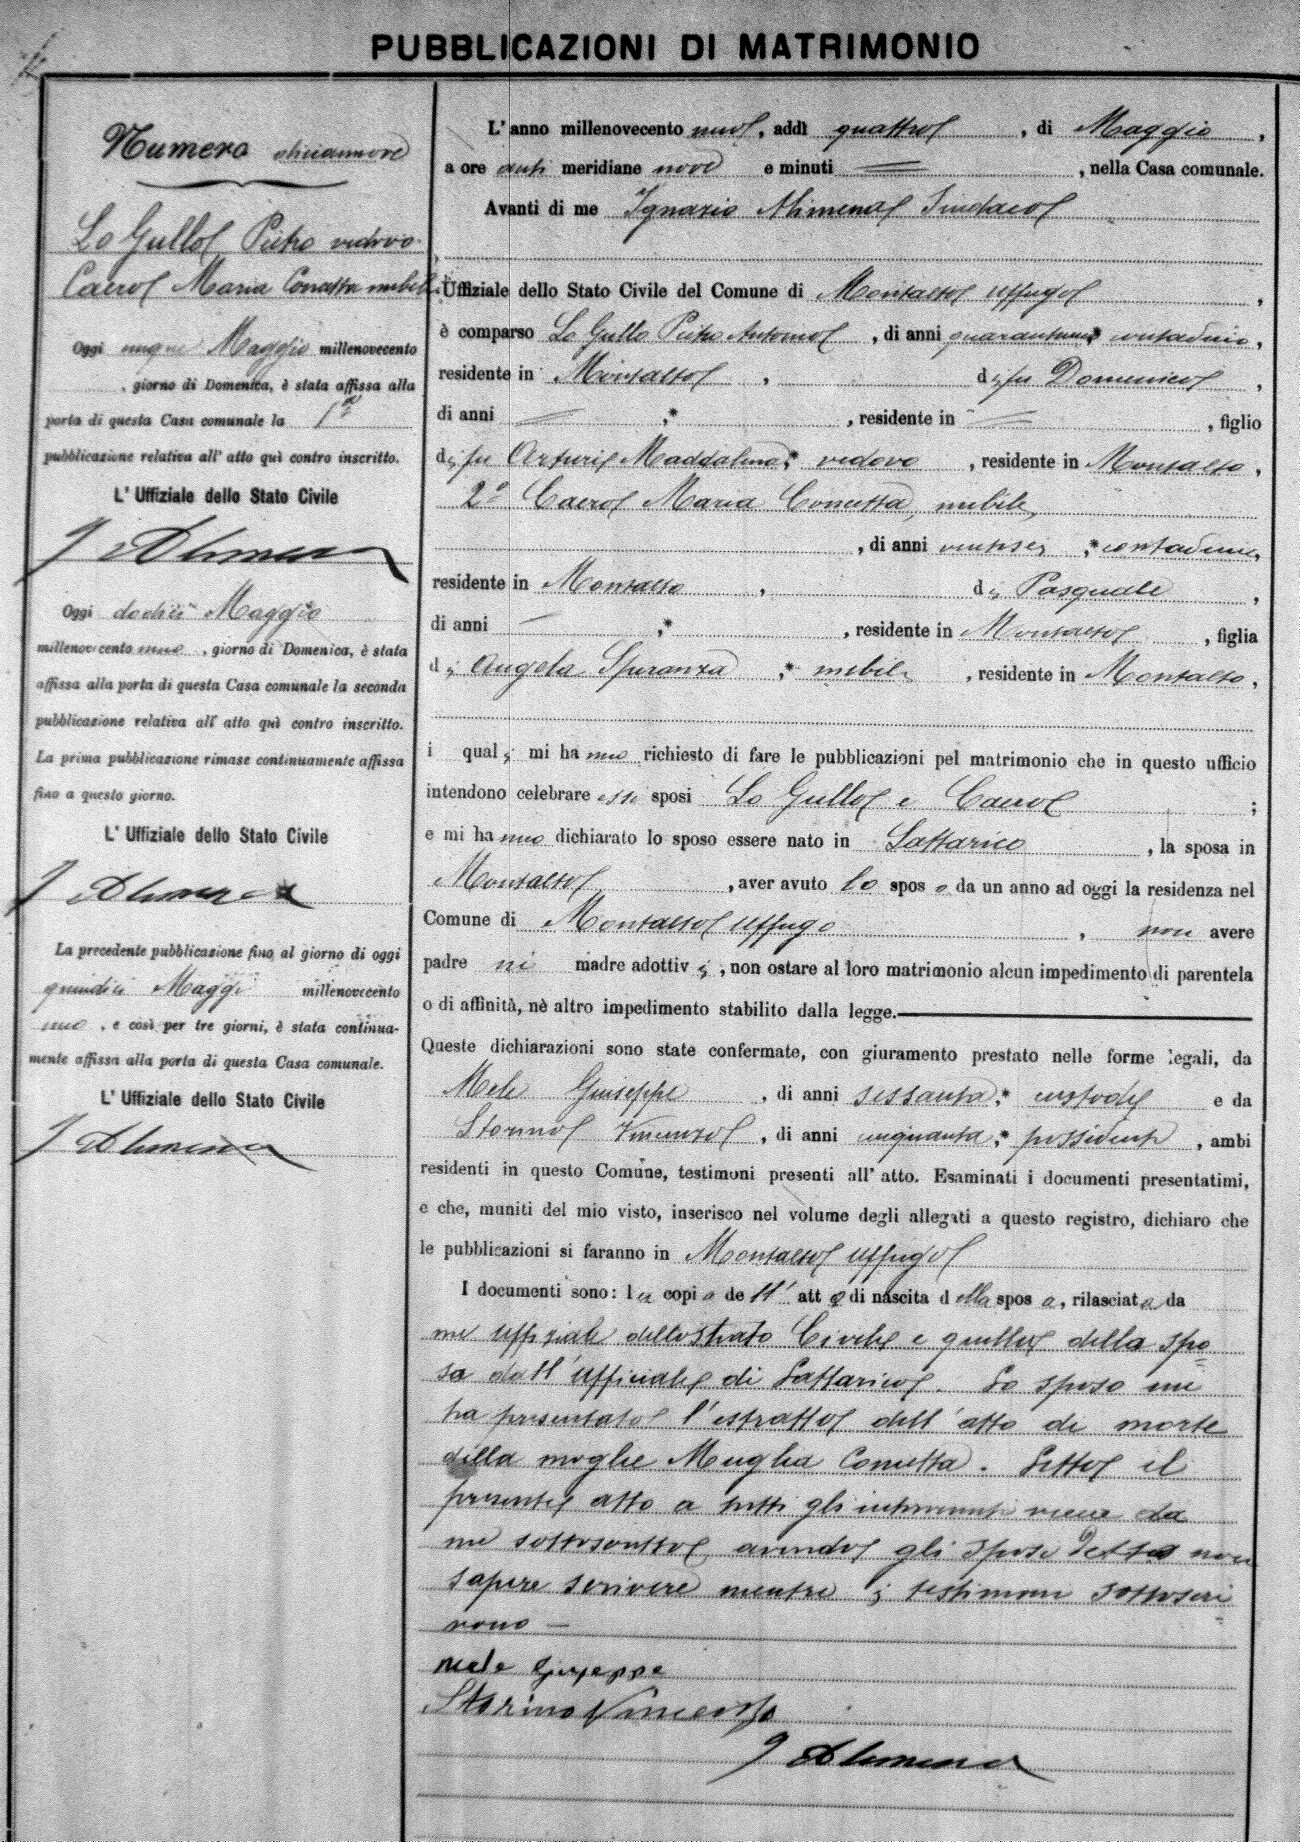 PUBBLICAZIONI DI MATRIMONIO
Numero diciannove
Lo Gullo Pietro vedovo
Caero Maria Concetta nubile
Oggi cinque Maggio millenovecento
, giorno di Domenica, è stata affissa alla
porta di questa Casa comunale la 1ª
pubblicazione relativa all' atto quì contro inscritto.
L' Uffiziale dello Stato Civile
I Alimena
Oggi dodici Maggio
millenovecento uno, giorno di Domenica, è stata
affissa alla porta di questa Casa comunale la seconda
pubblicazione relativa all' atto quì contro inscritto.
La prima pubblicazione rimase continuamente affissa
fino a questo giorno.
L' Uffiziale dello Stato Civile
I Alimena
La precedente pubblicazione fino al giorno di oggi
quindici Maggio millenovecento
uno, e così per tre giorni, è stata continua-
mente affissa alla porta di questa Casa comunale.
L' Uffiziale dello Stato Civile
I Alimena
L' anno millenovecento uno, addì quattro, di Maggio,
a ore anti meridiane nove e minuti =, nella Casa comunale.
Avanti di me Ignazio Alimena Sindaco
Uffiziale dello Stato Civile del Comune di Montalto Uffugo,
è comparso Lo Gullo Pietro Antonio, di anni quarantuno, contadino,
residente in Montalto, di fu Domenico,
di anni =, residente in =, figlio
di fu Maddalena, vedovo, residente in Montalto,
2º Caero Maria Concetta, nubile,
, di anni ventisei, contadina,
residente in Montalto, di Pasquale,
di anni —, residente in Montalto, figlia
di Angela Speranza, nubile, residente in Montalto,
i quali mi hanno richiesto di fare le pubblicazioni pel matrimonio che in questo ufficio
intendono celebrare essi sposi Lo Gullo e Caero;
e mi hanno dichiarato lo sposo essere nato in Lattarico, la sposa in
Montalto, aver avuto lo sposo da un anno ad oggi la residenza nel
Comune di Montalto Uffugo, non avere
padre nè madre adottivi, non ostare al loro matrimonio alcun impedimento di parentela
o di affinità, nè altro impedimento stabilito dalla legge.
Queste dichiarazioni sono state confermate, con giuramento prestato nelle forme legali, da
Mele Giuseppe, di anni sessanta, custode e da
Storino Vincenzo, di anni cinquanta, possidente, ambi
residenti in questo Comune, testimoni presenti all' atto. Esaminati i documenti presentatimi,
e che, muniti del mio visto, inserisco nel volume degli allegati a questo registro, dichiaro che
le pubblicazioni si faranno in Montalto Uffugo
I documenti sono: la copia dell' atto di nascita della sposa, rilasciata da
me uffiziale dello stato Civile e quello della spo=
sa dall' ufficiale di Lattarico. Lo sposo mi
ha presentato l'estratto dell' atto di morte
della moglie Muglia Concetta. Letto il
presente atto a tutti gli intervenuti viene da
me sottoscritto avendo gli sposi detto non
sapere scrivere mentre i testimoni sottoscri
vono —
Mele Giuseppe
Storino Vincenzo
I Alimena